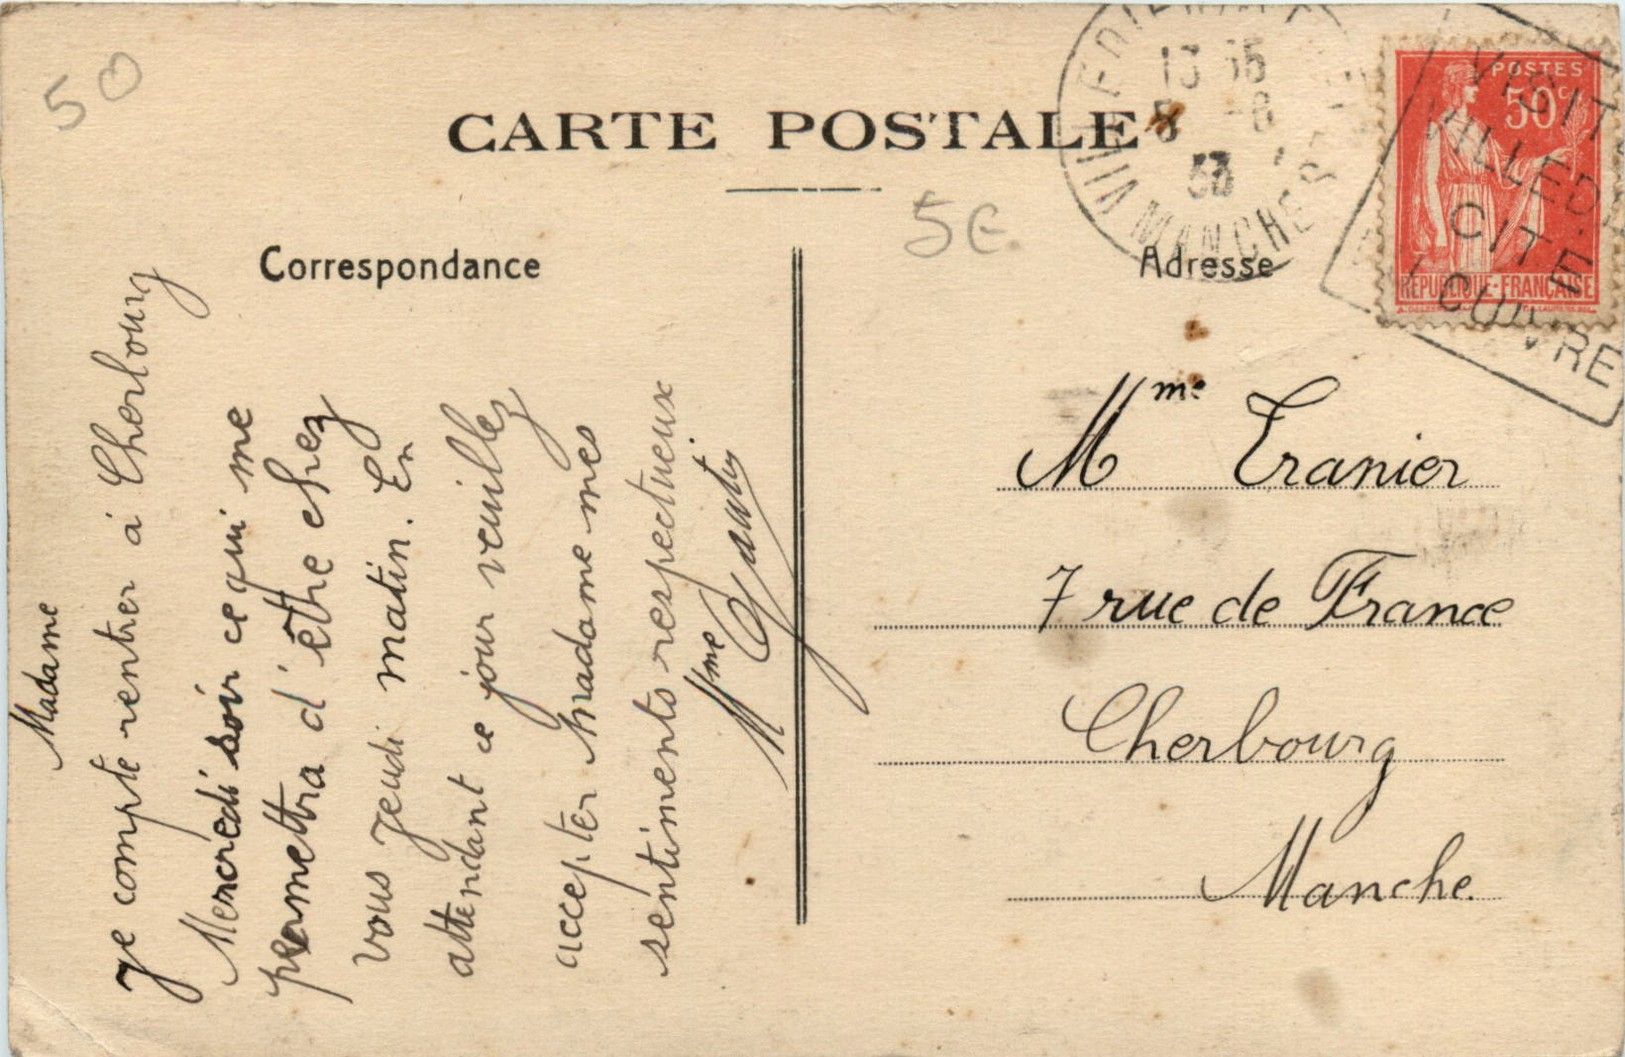 50
CARTE POSTALE
5€
Correspondance
Adresse
13 35
8 -8
33
MANCHE
POSTES
50c
REPUBLIQUE-FRANÇAISE
VISIT
VILLED
CITE
CUIVRE
Madame
Je compte rentrer à Cherbourg
Mercredi soir ce qui me
permettra d'être chez
vous Jeudi matin. En
attendant ce jour veuillez
accepter Madame mes
sentiments respectueux
Mme Gautier
Mme Tranier
7 rue de France
Cherbourg
Manche.